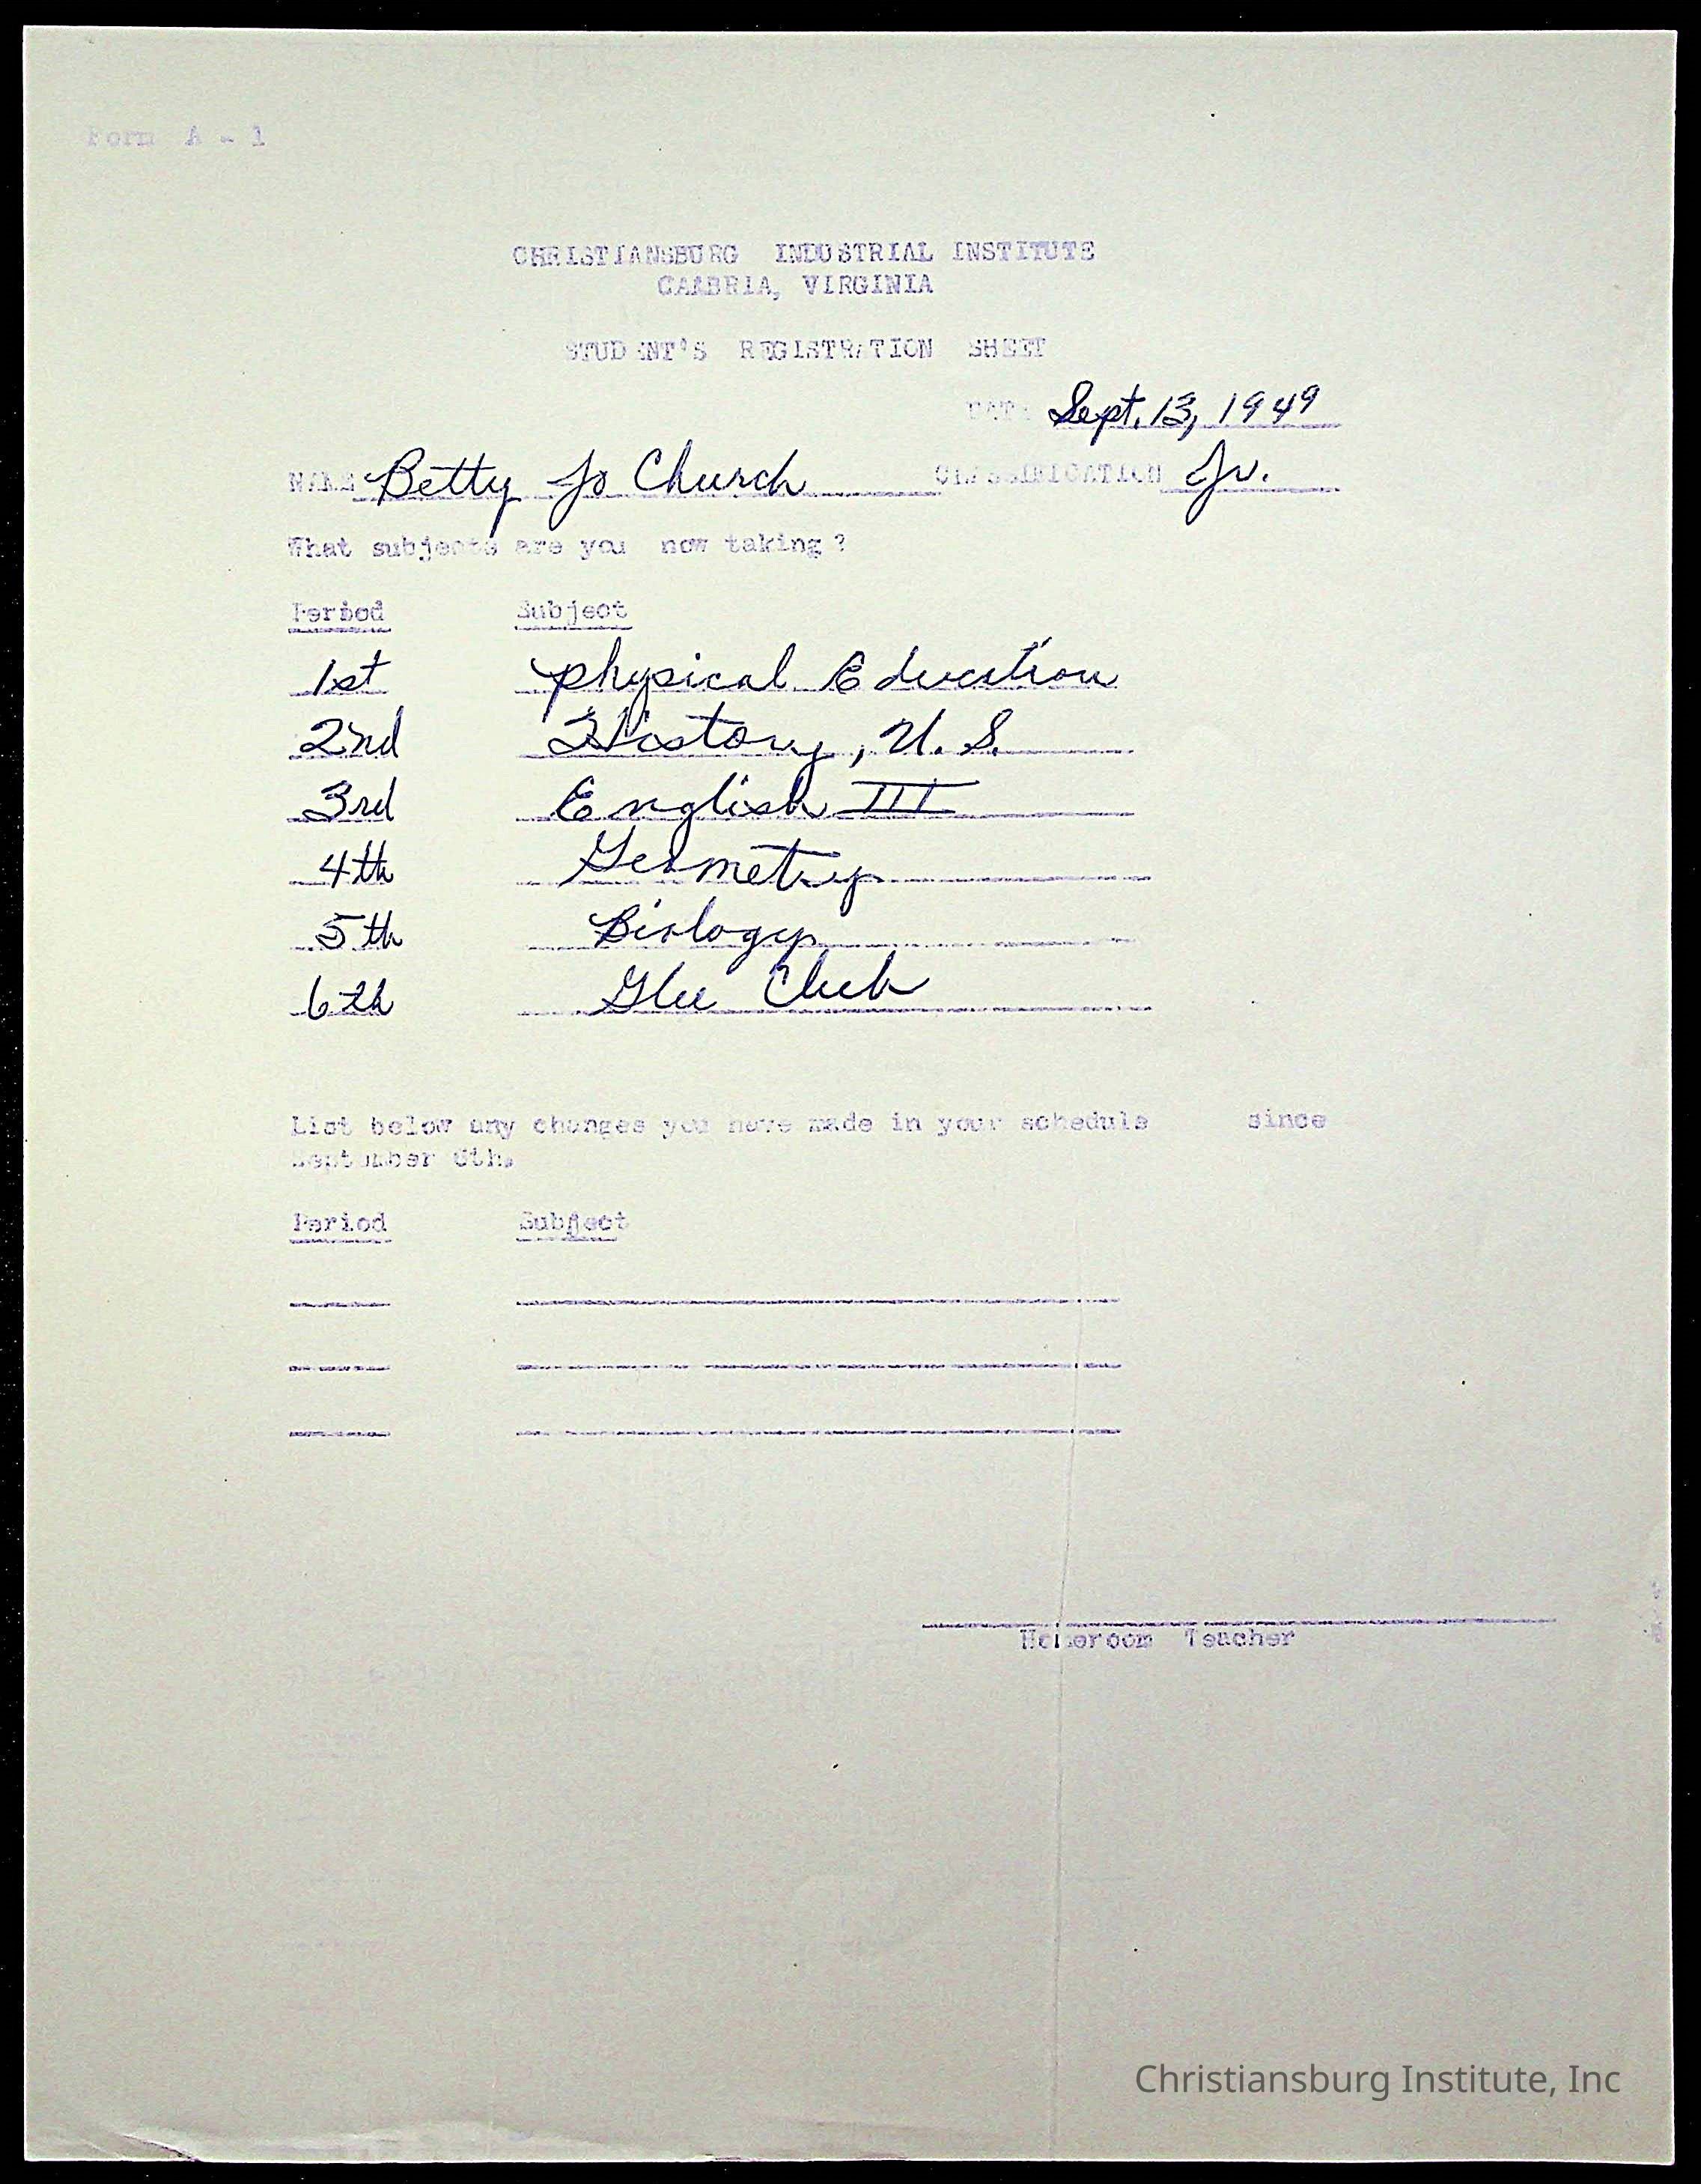 Form A - 1
CHRISTIANSBURG INDUSTRIAL INSTITUTE
CAMBRIA, VIRGINIA
STUDENT'S REGISTRATION SHEET
DATE Sept. 13, 1949
NAME Betty Jo Church CLASSIFICATION Jr.
What subjects are you now taking?
Period Subject
1st Physical Education
2nd History, U.S.
3rd English III
4th Geometry
5th Biology
6th Glee Club
List below any changes you have made in your schedule since
September 6th.
Period Subject
Homeroom Teacher
Christiansburg Institute, Inc